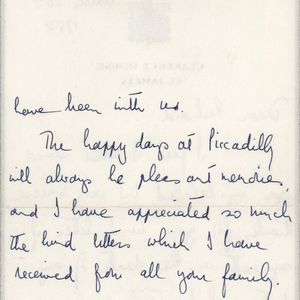 have been with us.
The happy days at Piccadilly
will always be pleasant memories,
and I have appreciated so much
the kind letters which I have
received from all your family.